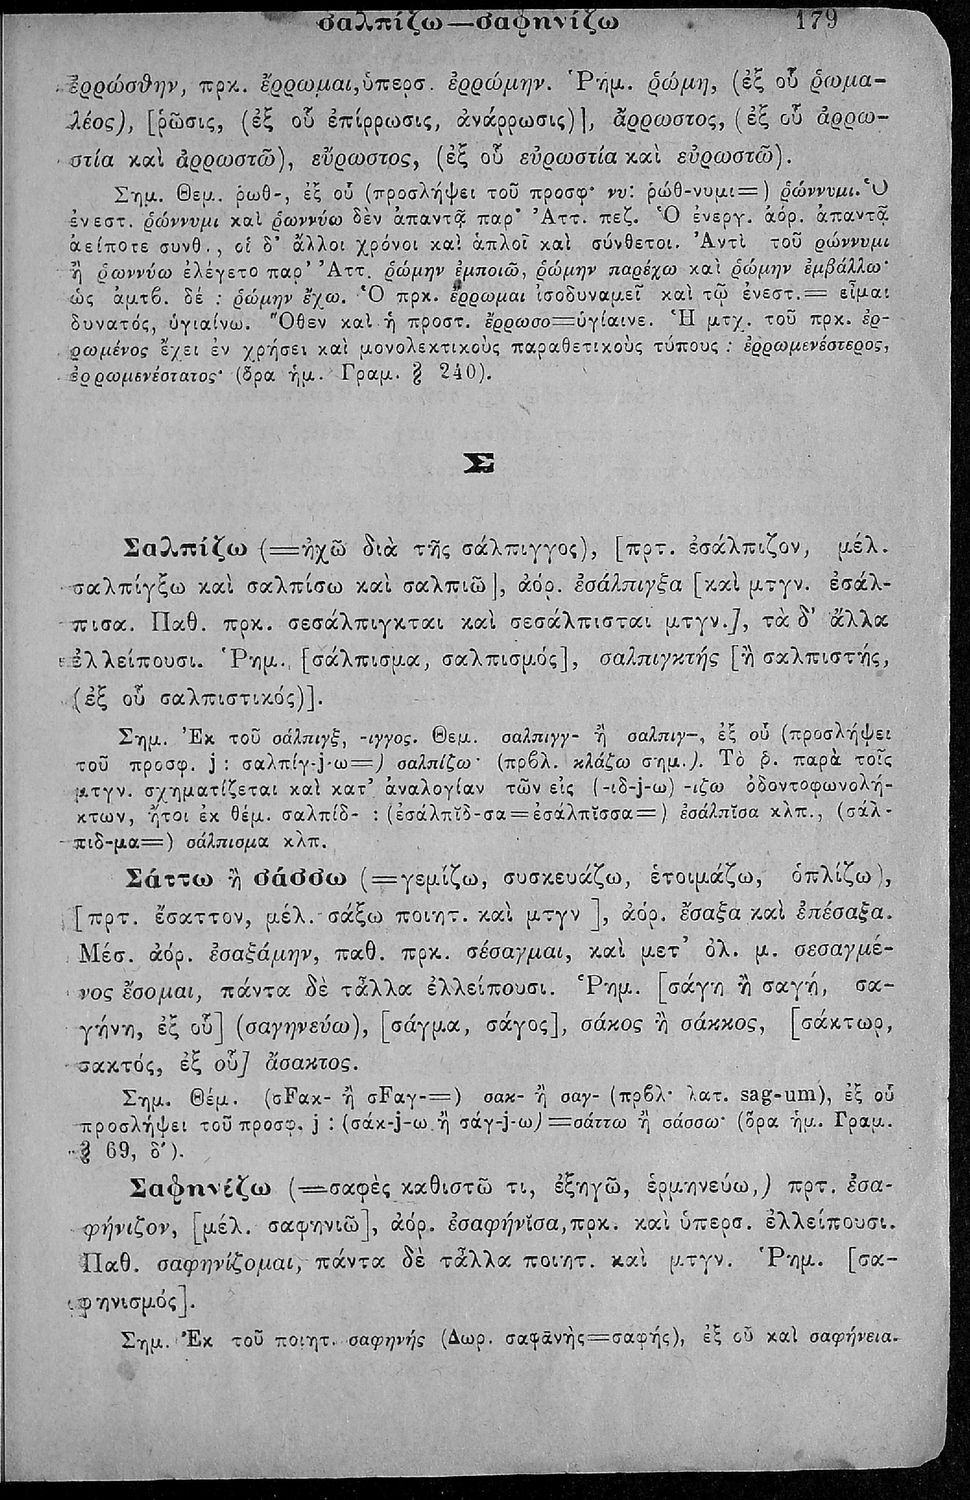 σαλπίζω—σαφηνίζω 179
ἐρρώσθην, πρκ. ἔρρωμαι, ὑπερσ. ἐρρώμην. Ῥημ. ῥώμη, (ἐξ οὗ ῥωμα-
λέος), [ῥῶσις, (ἐξ οὗ ἐπίρρωσις, ἀνάρρωσις)], ἄρρωστος, (ἐξ οὗ ἀρρω-
στία καὶ ἀρρωστῶ), εὔρωστος, (ἐξ οὗ εὐρωστία καὶ εὐρωστῶ).
Σημ. Θεμ. ῥωθ-, ἐξ οὗ (προσλήψει τοῦ προσφ· νυ: ῥώθ-νυμι=) ῥώννυμι. Ὁ
ἐνεστ. ῥώννυμι καὶ ῥωννύω δὲν ἀπαντᾷ παρ' Ἀττ. πεζ. Ὁ ἐνεργ. ἀόρ. ἀπαντᾷ
ἀείποτε συνθ., οἱ δ' ἄλλοι χρόνοι καὶ ἁπλοῖ καὶ σύνθετοι. Ἀντὶ τοῦ ῥώννυμι
ἢ ῥωννύω ἐλέγετο παρ' Ἀττ. ῥώμην ἐμποιῶ, ῥώμην παρέχω καὶ ῥώμην ἐμβάλλω·
ὡς ἀμτβ. δέ : ῥώμην ἔχω. Ὁ πρκ. ἔρρωμαι ἰσοδυναμεῖ καὶ τῷ ἐνεστ.= εἶμαι
δυνατός, ὑγιαίνω. Ὅθεν καὶ ἡ προστ. ἔρρωσο=ὑγίαινε. Ἡ μτχ. τοῦ πρκ. ἐρ-
ρωμένος ἔχει ἐν χρήσει καὶ μονολεκτικοὺς παραθετικοὺς τύπους : ἐρρωμενέστερος,
ἐρρωμενέστατος· (ὅρα ἡμ. Γραμ. § 240).
Σ
Σαλπίζω (=ἠχῶ διὰ τῆς σάλπιγγος), [πρτ. ἐσάλπιζον, μέλ.
σαλπίγξω καὶ σαλπίσω καὶ σαλπιῶ], ἀόρ. ἐσάλπιγξα [καὶ μτγν. ἐσάλ-
πισα. Παθ. πρκ. σεσάλπιγκται καὶ σεσάλπισται μτγν.], τὰ δ' ἄλλα
ἐλλείπουσι. Ῥημ. [σάλπισμα, σαλπισμός], σαλπιγκτής [ἢ σαλπιστής,
(ἐξ οὗ σαλπιστικός)].
Σημ. Ἐκ τοῦ σάλπιγξ, -ιγγος. Θεμ. σαλπιγγ- ἢ σαλπιγ-, ἐξ οὗ (προσλήψει
τοῦ προσφ. j : σαλπίγ-j-ω=) σαλπίζω· (πρβλ. κλάζω σημ.). Τὸ ῥ. παρὰ τοῖς
μτγν. σχηματίζεται καὶ κατ' ἀναλογίαν τῶν εἰς (-ιδ-j-ω) -ιζω ὀδοντοφωνολή-
κτων, ἤτοι ἐκ θέμ. σαλπίδ- : (ἐσάλπῐδ-σα=ἐσάλπῐσσα=) ἐσάλπῐσα κλπ., (σάλ-
πιδ-μα=) σάλπισμα κλπ.
Σάττω ἢ σάσσω (=γεμίζω, συσκευάζω, ἑτοιμάζω, ὁπλίζω),
[πρτ. ἔσαττον, μέλ. σάξω ποιητ. καὶ μτγν ], ἀόρ. ἔσαξα καὶ ἐπέσαξα.
Μέσ. ἀόρ. ἐσαξάμην, παθ. πρκ. σέσαγμαι, καὶ μετ' ὀλ. μ. σεσαγμέ-
νος ἔσομαι, πάντα δὲ τἆλλα ἐλλείπουσι. Ῥημ. [σάγη ἢ σαγή, σα-
γήνη, ἐξ οὗ] (σαγηνεύω), [σάγμα, σάγος], σάκος ἢ σάκκος, [σάκτωρ,
σακτός, ἐξ οὗ] ἄσακτος.
Σημ. Θέμ. (σFακ- ἢ σFαγ-=) σακ- ἢ σαγ- (πρβλ· λατ. sag-um), ἐξ οὗ
προσλήψει τοῦ προσφ. j : (σάκ-j-ω ἢ σάγ-j-ω)=σάττω ἢ σάσσω· (ὅρα ἡμ. Γραμ.
§ 69, δ').
Σαφηνίζω (=σαφὲς καθιστῶ τι, ἐξηγῶ, ἑρμηνεύω,) πρτ. ἐσα-
φήνιζον, [μέλ. σαφηνιῶ], ἀόρ. ἐσαφήνῐσα, πρκ. καὶ ὑπερσ. ἐλλείπουσι.
Παθ. σαφηνίζομαι, πάντα δὲ τἆλλα ποιητ. καὶ μτγν. Ῥημ. [σα-
φηνισμός].
Σημ. Ἐκ τοῦ ποιητ. σαφηνής (Δωρ. σαφᾱνὴς=σαφής), ἐξ οὗ καὶ σαφήνεια.